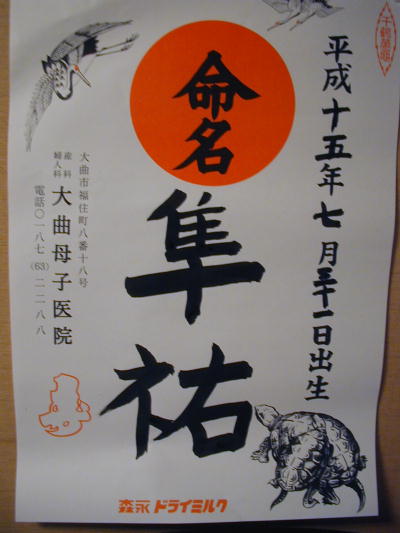 千鶴萬亀
平成十五年七月三十一日出生
命名
隼祐
大曲市福住町八番十八号
産科
婦人科
大曲母子医院
電話〇一八七(63)二二八八
森永ドライミルク